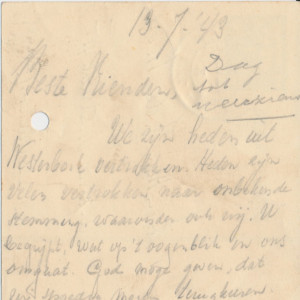 13-7-'43
Beste Vrienden,
Dag
tot
weerziens
We zijn heden uit
Westerbork vertrokken. Heden zijn
velen vertrokken naar onbekende
bestemming, waaronder ook wij. U
begrijpt, wat op 't oogenblik in ons
omgaat. God moge geven, dat